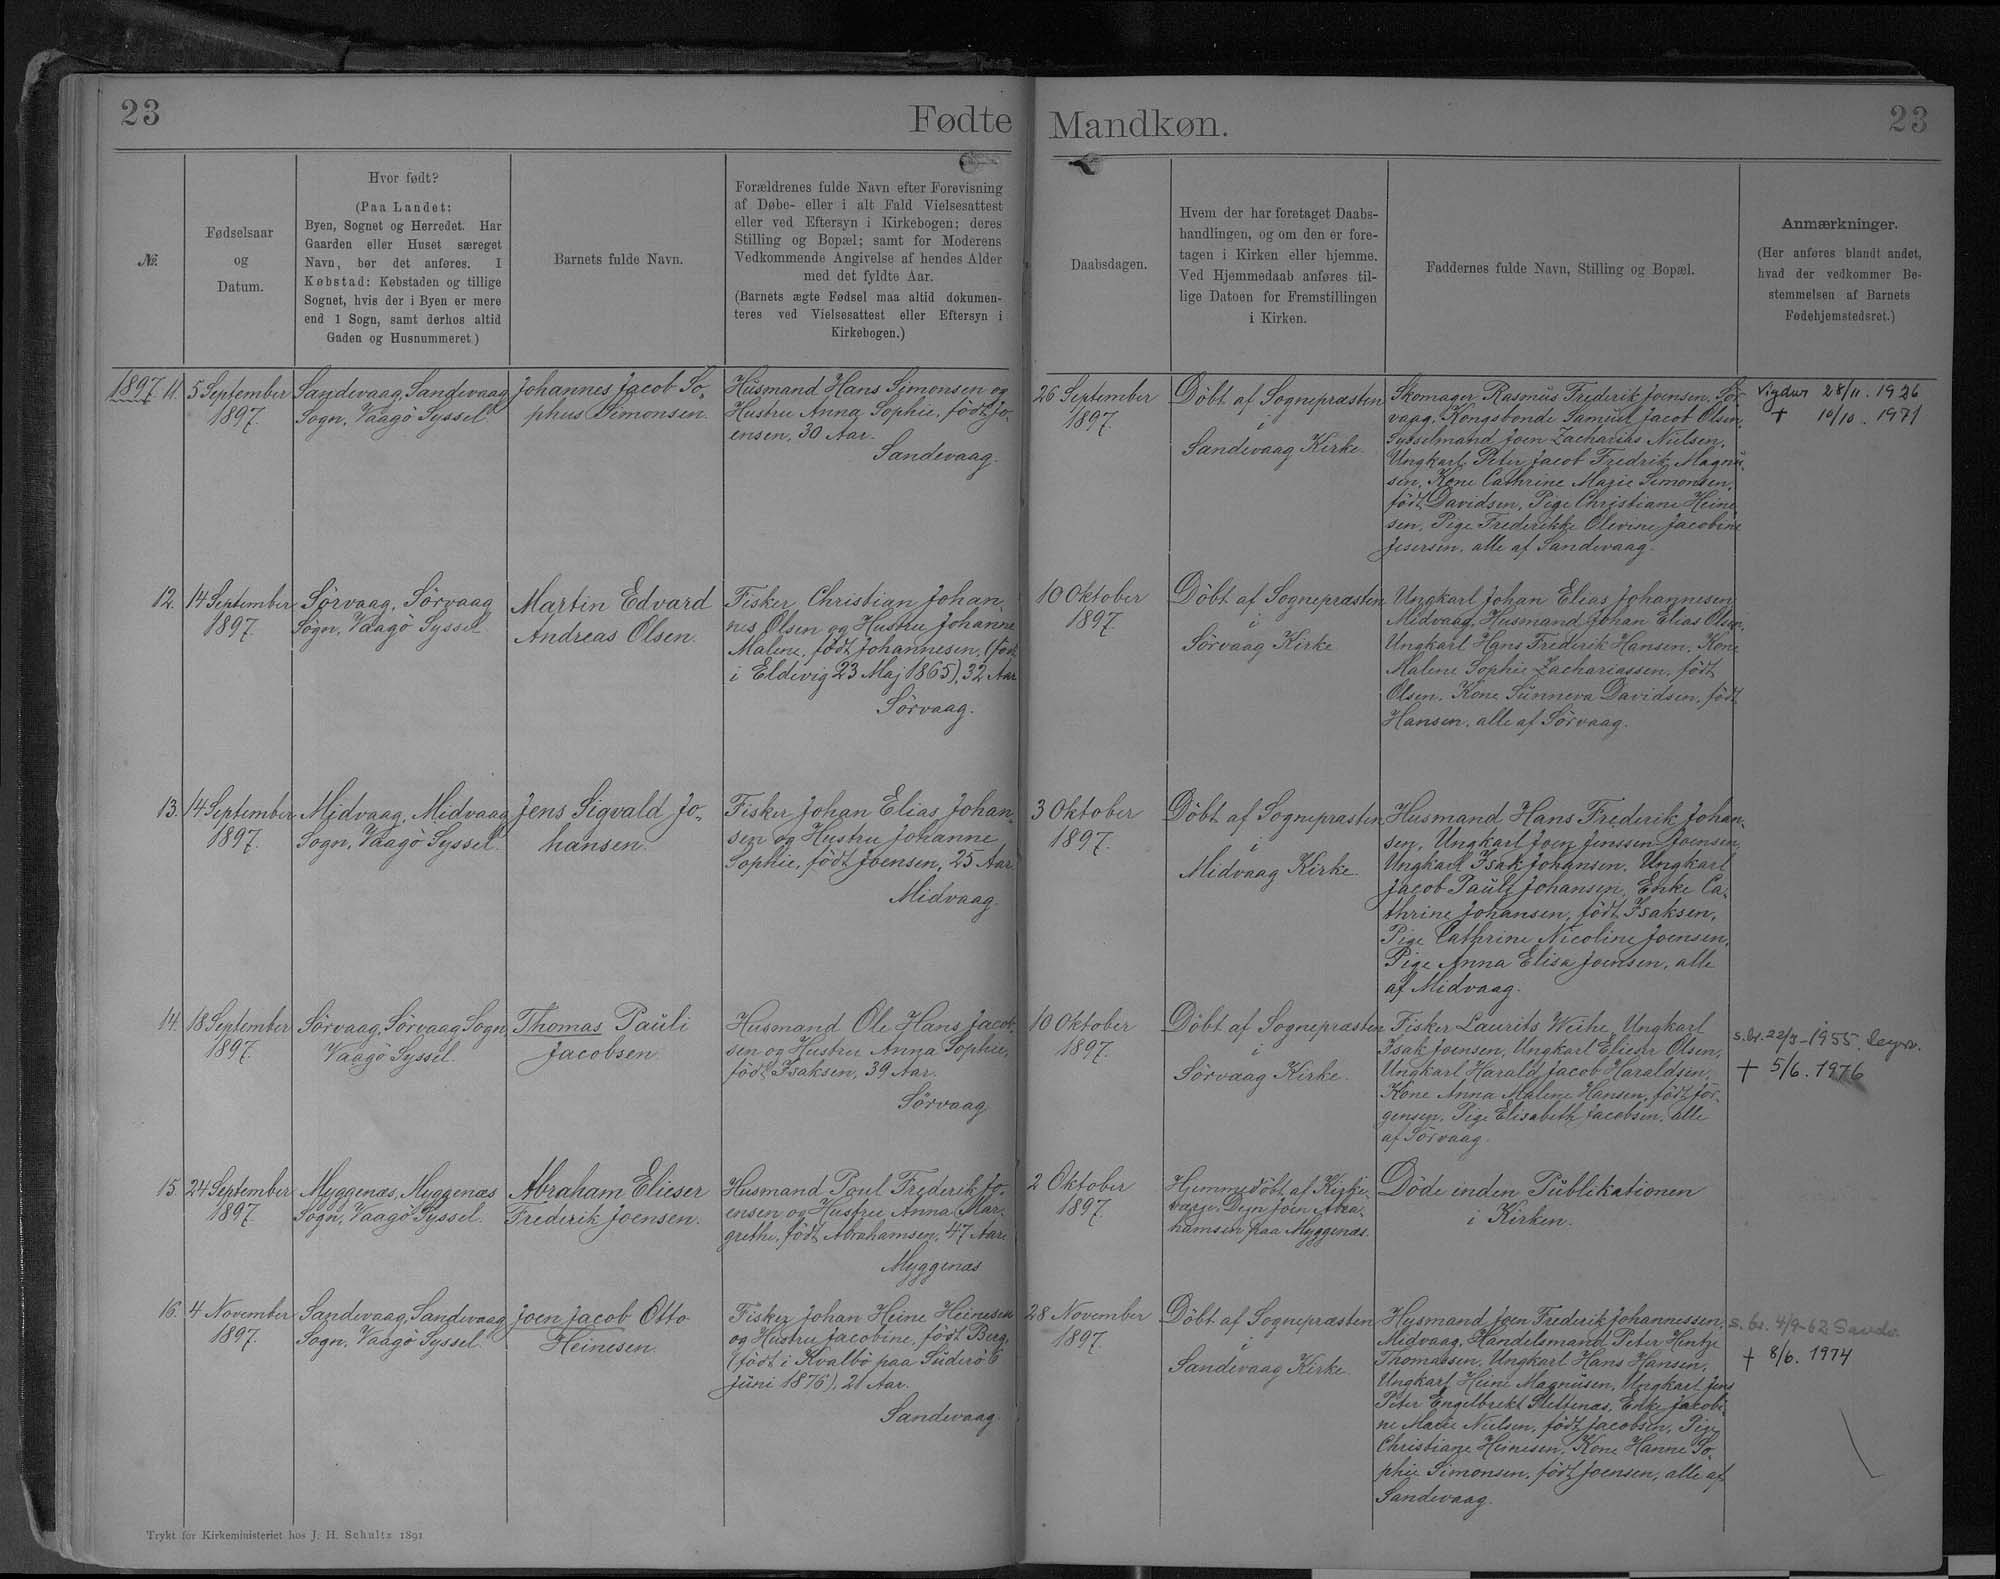 23
Fødte
№.
Fødselsaar
og
Datum.
Hvor født?
(Paa Landet:
Byen, Sognet og Herredet. Har
Gaarden eller Huset særeget
Navn, bør det anføres. I
Købstad: Købstaden og tillige
Sognet, hvis der i Byen er mere
end 1 Sogn, samt derhos altid
Gaden og Husnummeret)
Barnets fulde Navn.
Forældrenes fulde Navn efter Forevisning
af Døbe- eller i alt Fald Vielsesattest
eller ved Eftersyn i Kirkebogen; deres
Stilling og Bopæl; samt for Moderens
Vedkommende Angivelse af hendes Alder
med det fyldte Aar.
(Barnets ægte Fødsel maa altid dokumen-
teres ved Vielsesattest eller Eftersyn i
Kirkebogen.)
1897. 11.
5 September
1897.
Sandevaag, Sandevaag
Sogn, Vaagö Syssel.
Johannes Jacob So-
phus Simonsen.
Husmand Hans Simonsen og
Hustru Anna Sophie, født Jo-
ensen, 30 Aar.
Sandevaag.
12.
14 September
1897.
Sörvaag, Sörvaag
Sogn, Vaagö Syssel
Martin Edvard
Andreas Olsen.
Fisker Christian Johan-
nis Olsen og Hustru Johanne
Malene, født Johannesen, (født
i Eldevig 23 Maj 1865), 32 Aar
Sörvaag.
13.
14 September
1897.
Midvaag, Midvaag
Sogn, Vaagö Syssel.
Jens Sigvald Jo-
hansen.
Fisker Johan Elias Johan-
sen og Hustru Johanne
Sophie, født Joensen, 25 Aar
Midvaag.
14.
18 September
1897.
Sörvaag, Sörvaag Sogn,
Vaagö Syssel.
Thomas Pauli
Jacobsen
Husmand Ole Hans Jacob-
sen og Hustru Anna Sophie,
født Isaksen, 39 Aar.
Sörvaag
15.
24 September
1897.
Myggenæs, Myggenæs
Sogn, Vaagö Syssel.
Abraham Elieser
Frederik Joensen.
Husmand Poul Frederik Jo-
ensen og Hustru Anna Mar-
grethe, født Abrahamsen, 47 Aar.
Myggenæs
16.
4 November
1897.
Sandevaag, Sandevaag
Sogn, Vaagö Syssel
Joen Jacob Otto
Heinesen.
Fisker Johan Heine Heinesen
og Hustru Jacobine, født Berg,
(født i Kvalbö paa Süderö 6
Juni 1876), 21 Aar.
Sandevaag.
Trykt for Kirkeministeriet hos J. H. Schultz 1891
Mandkøn.
23
Daabsdagen.
Hvem der har foretaget Daabs-
handlingen, og om den er fore-
tagen i Kirken eller hjemme.
Ved Hjemmedaab anføres til-
lige Datoen for Fremstillingen
i Kirken.
Faddernes fulde Navn, Stilling og Bopæl.
Anmærkninger.
(Her anføres blandt andet,
hvad der vedkommer Be-
stemmelsen af Barnets
Fødehjemstedsret.)
26 September
1897.
Döbt af Sognepræsten
i
Sandevaag Kirke.
Skomager Rasmus Frederik Joensen, Sör-
vaag, Kongsbonde Samuel Jacob Olsen,
Sysselmand Joen Zacharias Nielsen,
Ungkarl Peter Jacob Fredrik Magnu-
sen, Kone Cathrine Marie Simonsen,
født Davidsen, Pige Christiane Heine-
sen, Pige Frederikke Olevine Jacobine
alle af Sandevaag.
Vigdur 28/11. 1926
+ 10/10. 1971
10 Oktober
1897.
Döbt af Sognepræsten
i
Sörvaag Kirke
Ungkarl Johan Elias Johannesen
Midvaag, Husmand Johan Elias Olsen,
Ungkarl Hans Frederik Hansen, Kone
Malene Sophie Zachariassen, født
Olsen, Kone Sunneva Davidsen, født
Hansen, alle af Sörvaag.
3 Oktober
1897.
Döbt af Sognepræsten
i
Midvaag Kirke.
Husmand Hans Frederik Johan-
sen, Ungkarl Joen Jenssen Joensen,
Ungkarl Isak Johansen, Ungkarl
Jacob Pauli Johansen, Enke Ca-
thrine Johansen, født Isaksen,
Pige Cathrine Nicoline Joensen,
Pige Anna Elisa Joensen, alle
af Midvaag.
10 Oktober
1897.
Döbt af Sognepræsten
i
Sörvaag Kirke.
Fisker Laurits Weihe, Ungkarl
Isak Joensen, Ungkarl Elieser Olsen,
Ungkarl Harald Jacob Haraldsen,
Kone Anna Malene Hansen, født Jör-
gensen, Pige Elisabeth Jacobsen, alle
af Sörvaag.
s. br. 22/3-1955.
+ 5/6. 1976
2 Oktober
1897.
Hjemmedöbt af Kirke-
værge, Degn Joen Abra-
hamsen paa Myggenæs.
Döde inden Publikationen
i Kirken.
28 November
1897.
Döbt af Sognepræsten
i
Sandevaag Kirke.
Husmand Joen Frederik Johannessen,
Midvaag, Handelsmand Peter Hentze
Thomassen, Ungkarl Hans Hansen,
Ungkarl Heine Magnusen, Ungkarl Jens
Peter Engelbrekt Slettenæs, Enke Jacobi-
ne Marie Nielsen, født Jacobsen, Pige
Christiane Heinesen, Kone Hanne So-
phie Simonsen, født Joensen, alle af
Sandevaag.
s. br. 4/9-62 Sandv.
+ 8/6. 1974